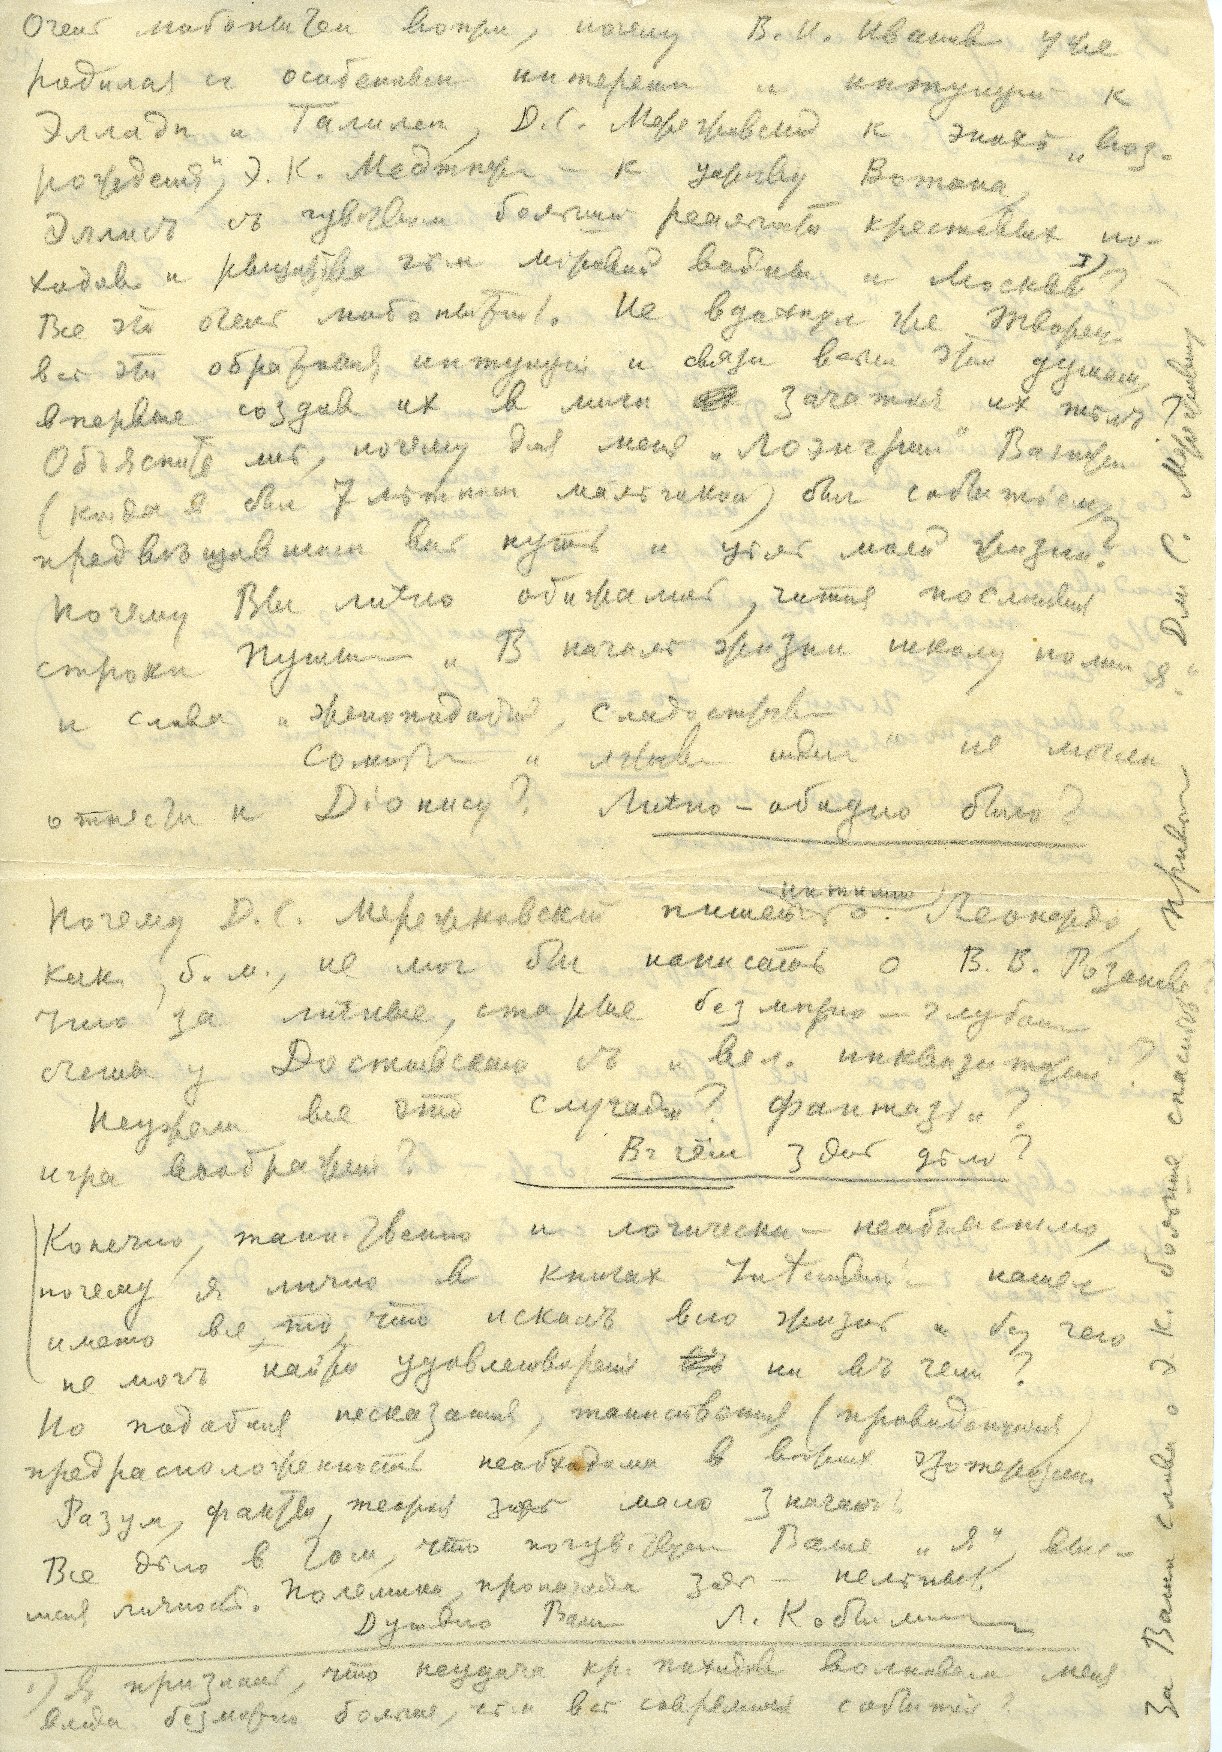 Очень любопытен вопрос, почему В. И. Иванов уже
родился с особенным интересом и интуицией к
Элладе и Галилее, Д. С. Мережковский к эпохе „Воз-
рождения“, Э. К. Метнер — к царству Вотана,
Эллисъ съ чувством большей реальности крестовых по-
ходов и рыцарства чѣм мировой войны и Москвы 1)?
Все это очень любопытно. Не вдохнул же Творец
все эти образы, интуиции и связи всем этим душам,
впервые создав их в миги зачатия их тѣлъ?
Объясните мнѣ, почему для меня „Лоэнгрин“ Вагнера
(когда я был 7 лѣтним мальчиком) был событием,
предвѣщавшим весь путь и цѣль моей жизни?
Почему Вы лично обижались, читая послѣдния
строки Пушкина „В началѣ жизни школу помню я“
и слова „женоподобный, сладострастный
сомнительный и лживый идеал“ не могли
отнести к Діонису? Лично — обидно было?
Почему Д. С. Мережковскій пишет интимно о Леонардо,
как, б. м., не мог бы написать о В. В. Розанове?
Что за личные, старые безмѣрно — глубокие
счеты у Достоевского съ „вел. инквизитором“?
Неужели все это случай? фантазия?
игра воображения? В чем здѣсь дѣло?
Конечно, таинственно и логически — необъяснимо,
почему я лично в книгах Штейнера нашел
именно все, то, что искалъ всю жизнь и без чего
не могъ найти удовлетворения ни въ чем?
Но подобная несказанная, таинственная (провиденциальная)
предрасположенность необходима в вопросах эзотеризма.
Разум, факты, теория здѣсь мало значат!
Все дѣло в том, что почувствует Ваше „я“, выс-
шая личность. Полемика, пропаганда здѣсь — нелѣпы!
Душевно Ваш Л. Кобылинский
1) Я признаю, что неудача кр. походов волновала меня
всегда безмѣрно больше, чѣм всѣ современныя события!
За Ваши слова о Э. К. большое спасибо! Привет Дм. С. Мережковскому